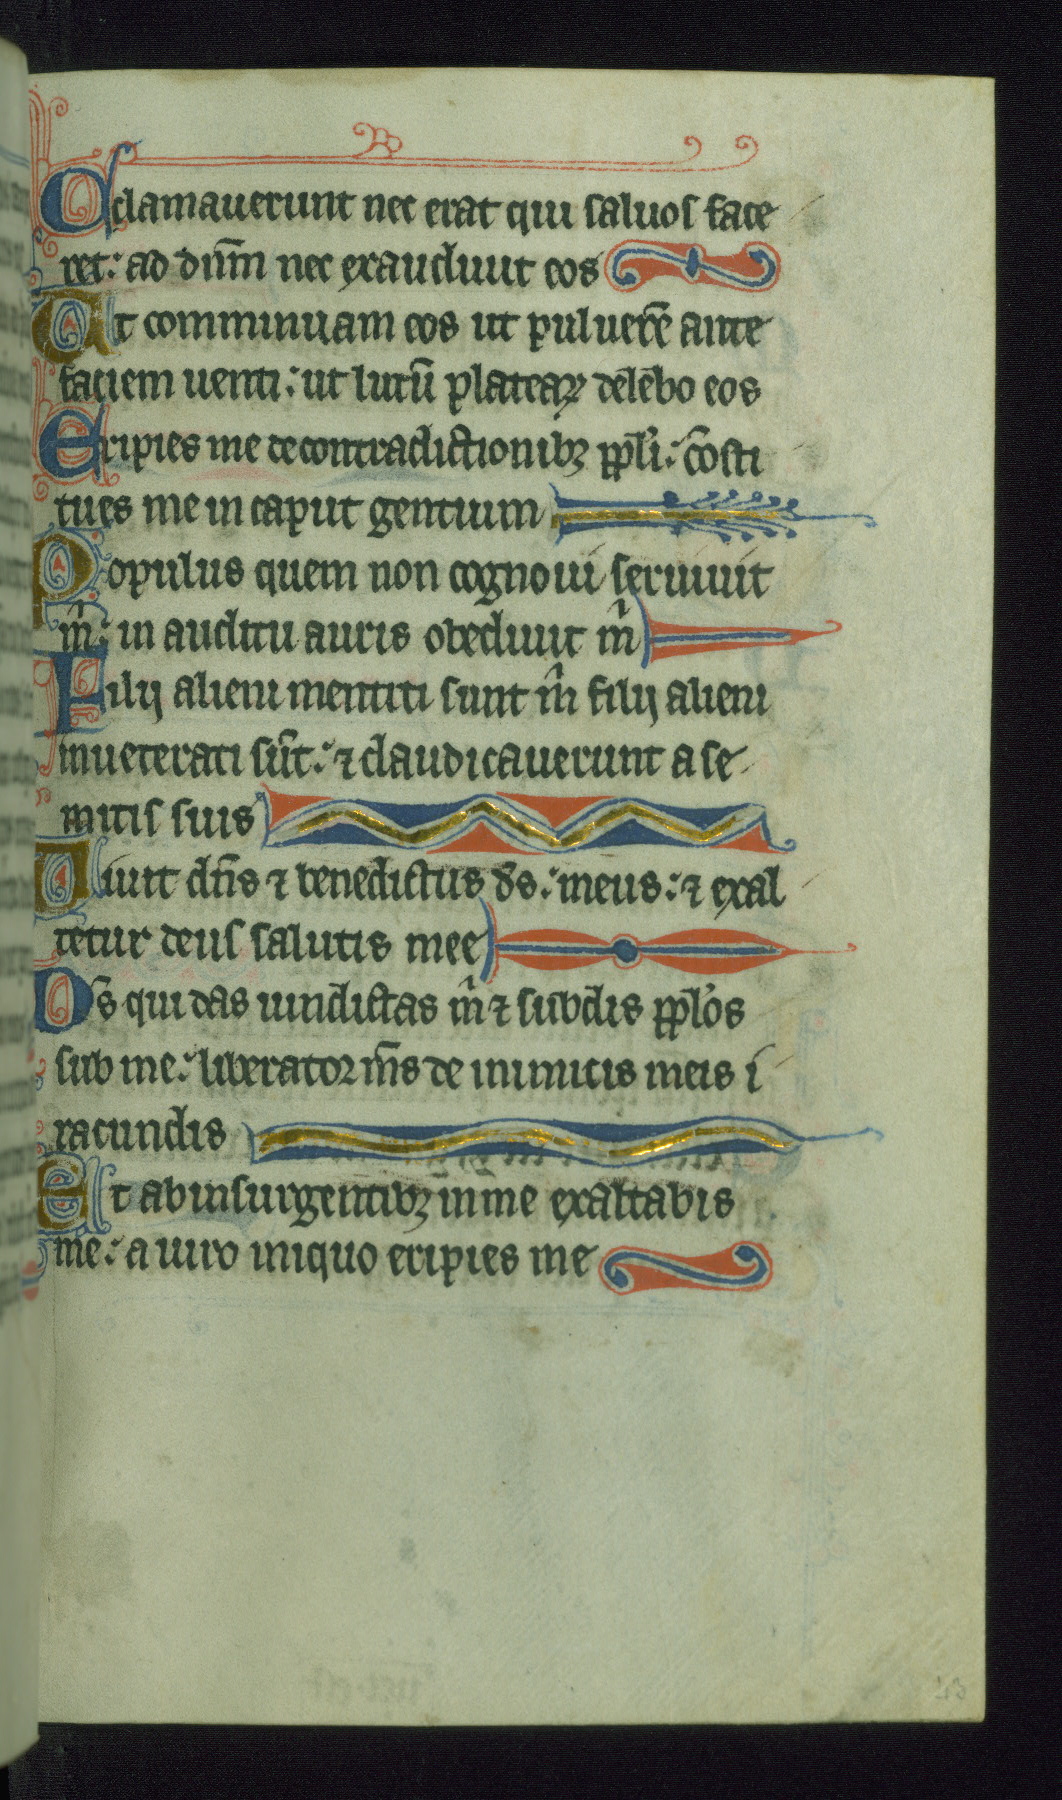 Clamauerunt nec erat qui saluos face
ret: ad dn̄m nec exaudiuit eos
Et comminuam eos ut puluerē ante
faciem uenti: ut lutū plateaꝝ delebo eos
Eripies me decontradictionibꝫ ppl̓i: cōsti
tues me in caput gentium
Populus quem non cognoui seruiuit
m̓: in auditu auris obediuit m̓
Filij alieni mentiti sunt m̓ filij alieni
inueterati sūt: ⁊ claudicauerunt a se
mitis suis
Uiuit dn̄s ⁊ benedictus ds: meus: ⁊ exal
tetur deus salutis mee
Ds qui das uindictas m̓ ⁊ subdis ppl̓os
sub me: liberator m̄s de inimicis meis i
racundis
Et abinsurgentibꝫ inme exaltabis
me: a uiro iniquo eripies me
43